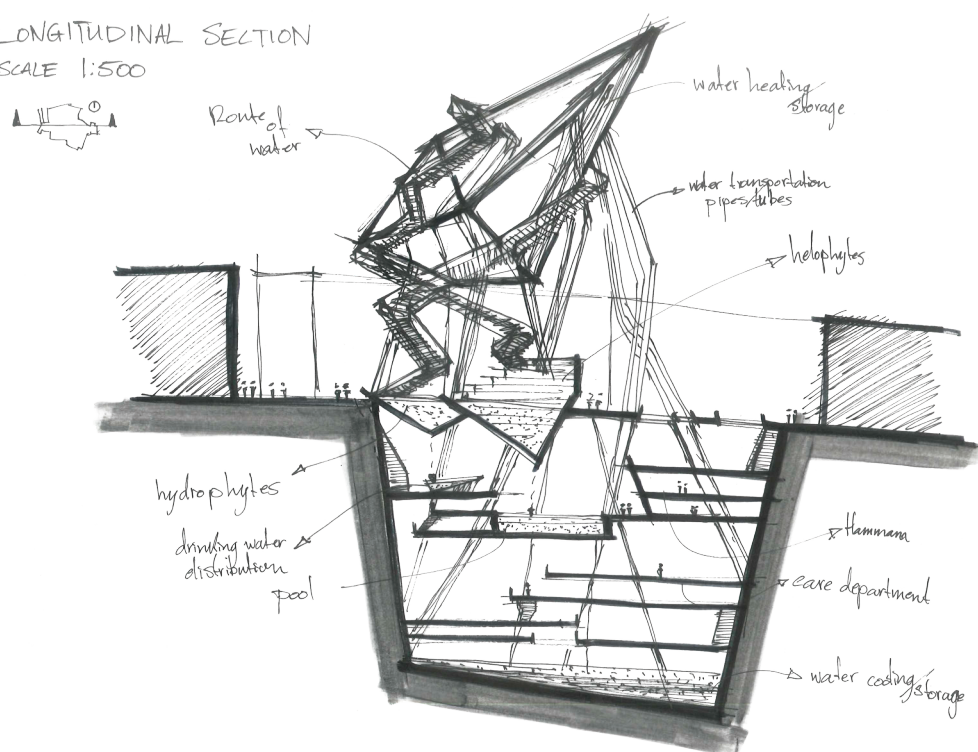 LONGITUDINAL SECTION
SCALE 1:500
Route
of
water
water heating/
storage
water transportation
pipes/tubes
helophytes
hydrophytes
drinking water
distribution
pool
Hammana
care department
water cooling/
storage